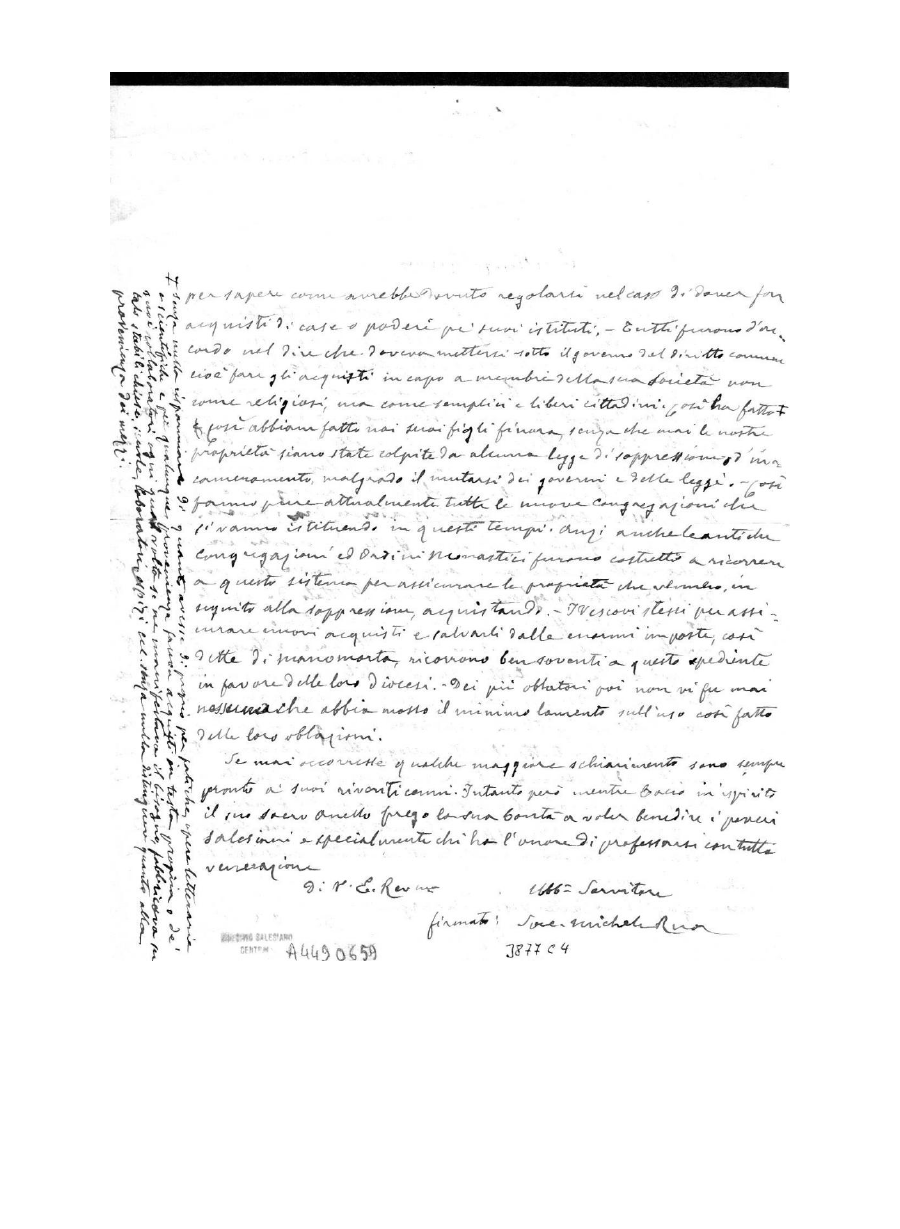 per sapere come avrebbe dovuto regolarsi nel caso di dover far
acquisti di case o poderi pei suoi istituti. - Tutti furono d'ac-
cordo nel dire che doveva mettersi sotto il governo del diritto comune
cioè fare gli acquisti in capo a membri della sua Società non
come religiosi, ma come semplici e liberi cittadini. Così ha fatto ‡
e così abbiam fatto noi suoi figli finora, senza che mai le nostre
proprietà siano state colpite da alcuna legge di soppressione, d'in-
cameramento, malgrado il mutarsi dei governi e delle leggi. - Così
fanno pure attualmente tutte le nuove congregazioni che
si vanno istituendo in questi tempi. Anzi anche le antiche
congregazioni ed Ordini Monastici furono costretto a ricorrere
a questo sistema per assicurare le proprietà che vennero, in
seguito alla soppressione, acquistando. - I Vescovi stessi per assi-
curare nuovi acquisti e salvarli dalle enormi imposte, così
dette di manomorta, ricorrono ben soventi a questo spediente
in favore delle loro diocesi. - Dei pii oblatori poi non vi fu mai
nessuno che abbia mosso il minimo lamento sull'uso così fatto
delle loro oblazioni.
Se mai occorresse qualche maggiore schiarimento sono sempre
pronto a' suoi riveriti cenni. Intanto però mentre bacio in ispirito
il suo sacro anello prego la sua bontà a voler benedire i poveri
Salesiani e specialmente chi ha l'onore di professarsi con tutta
venerazione
Di V. E. Rev.ma
Obb.mo Servitore
firmato: Sac. Michele Rua
SALESIANO
CENTR
A4490659
3877 C 4
‡ senza nulla risparmiare di quanto avesse di proprio per pratiche, opere letterarie
e scientifiche e per qualunque provenienza faceva acquisti in testa propria o de'
suoi collaboratori ogni qual volta se ne manifestava il bisogno, fabbricava su
tali stabili chiese, scuole, laboratori, ospizi ecc. senza nulla distinguere quanto alla
provenienza dei mezzi.